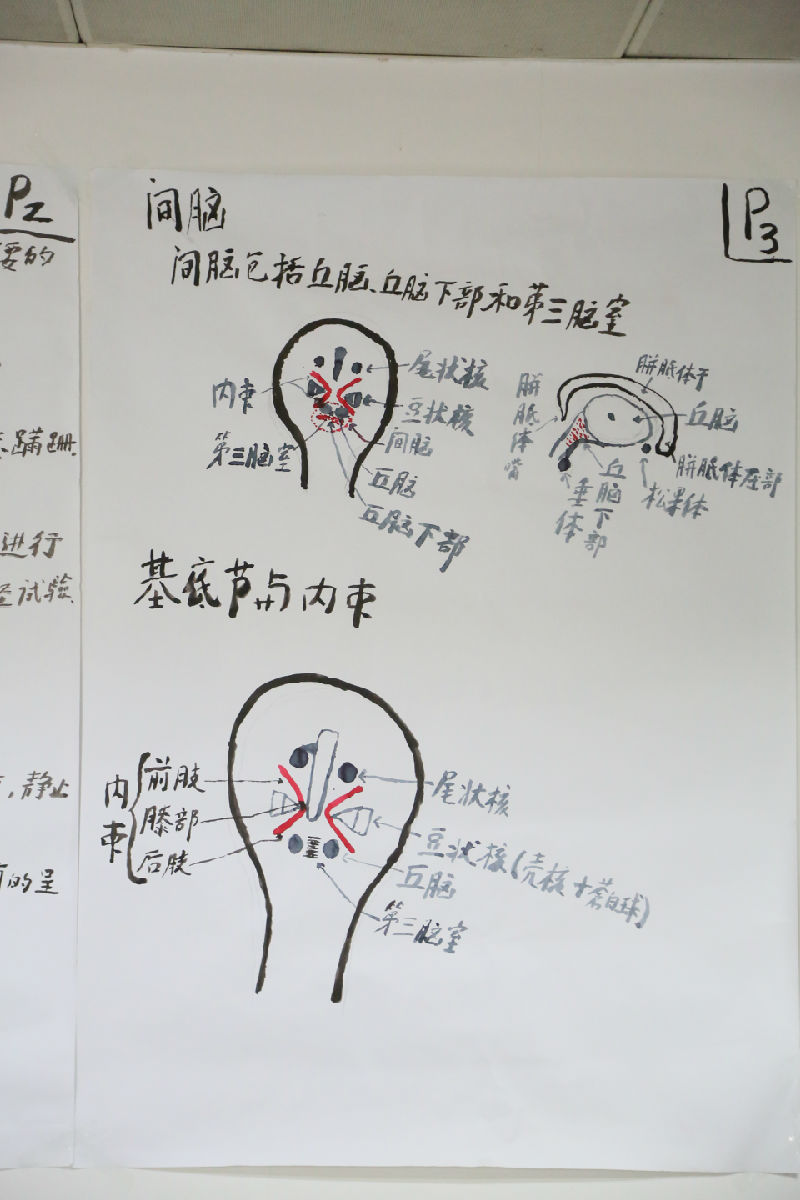 P2
要的
蹒跚
进行
试验
,静止
的呈
P3
间脑
间脑包括丘脑、丘脑下部和第三脑室
内束
第三脑室
尾状核
豆状核
间脑
丘脑
丘脑下部
胼胝体嘴
胼胝体干
丘脑
胼胝体压部
松果体
丘脑下部
垂体
基底节与内束
内束
前肢
膝部
后肢
尾状核
豆状核(壳核+苍白球)
丘脑
第三脑室